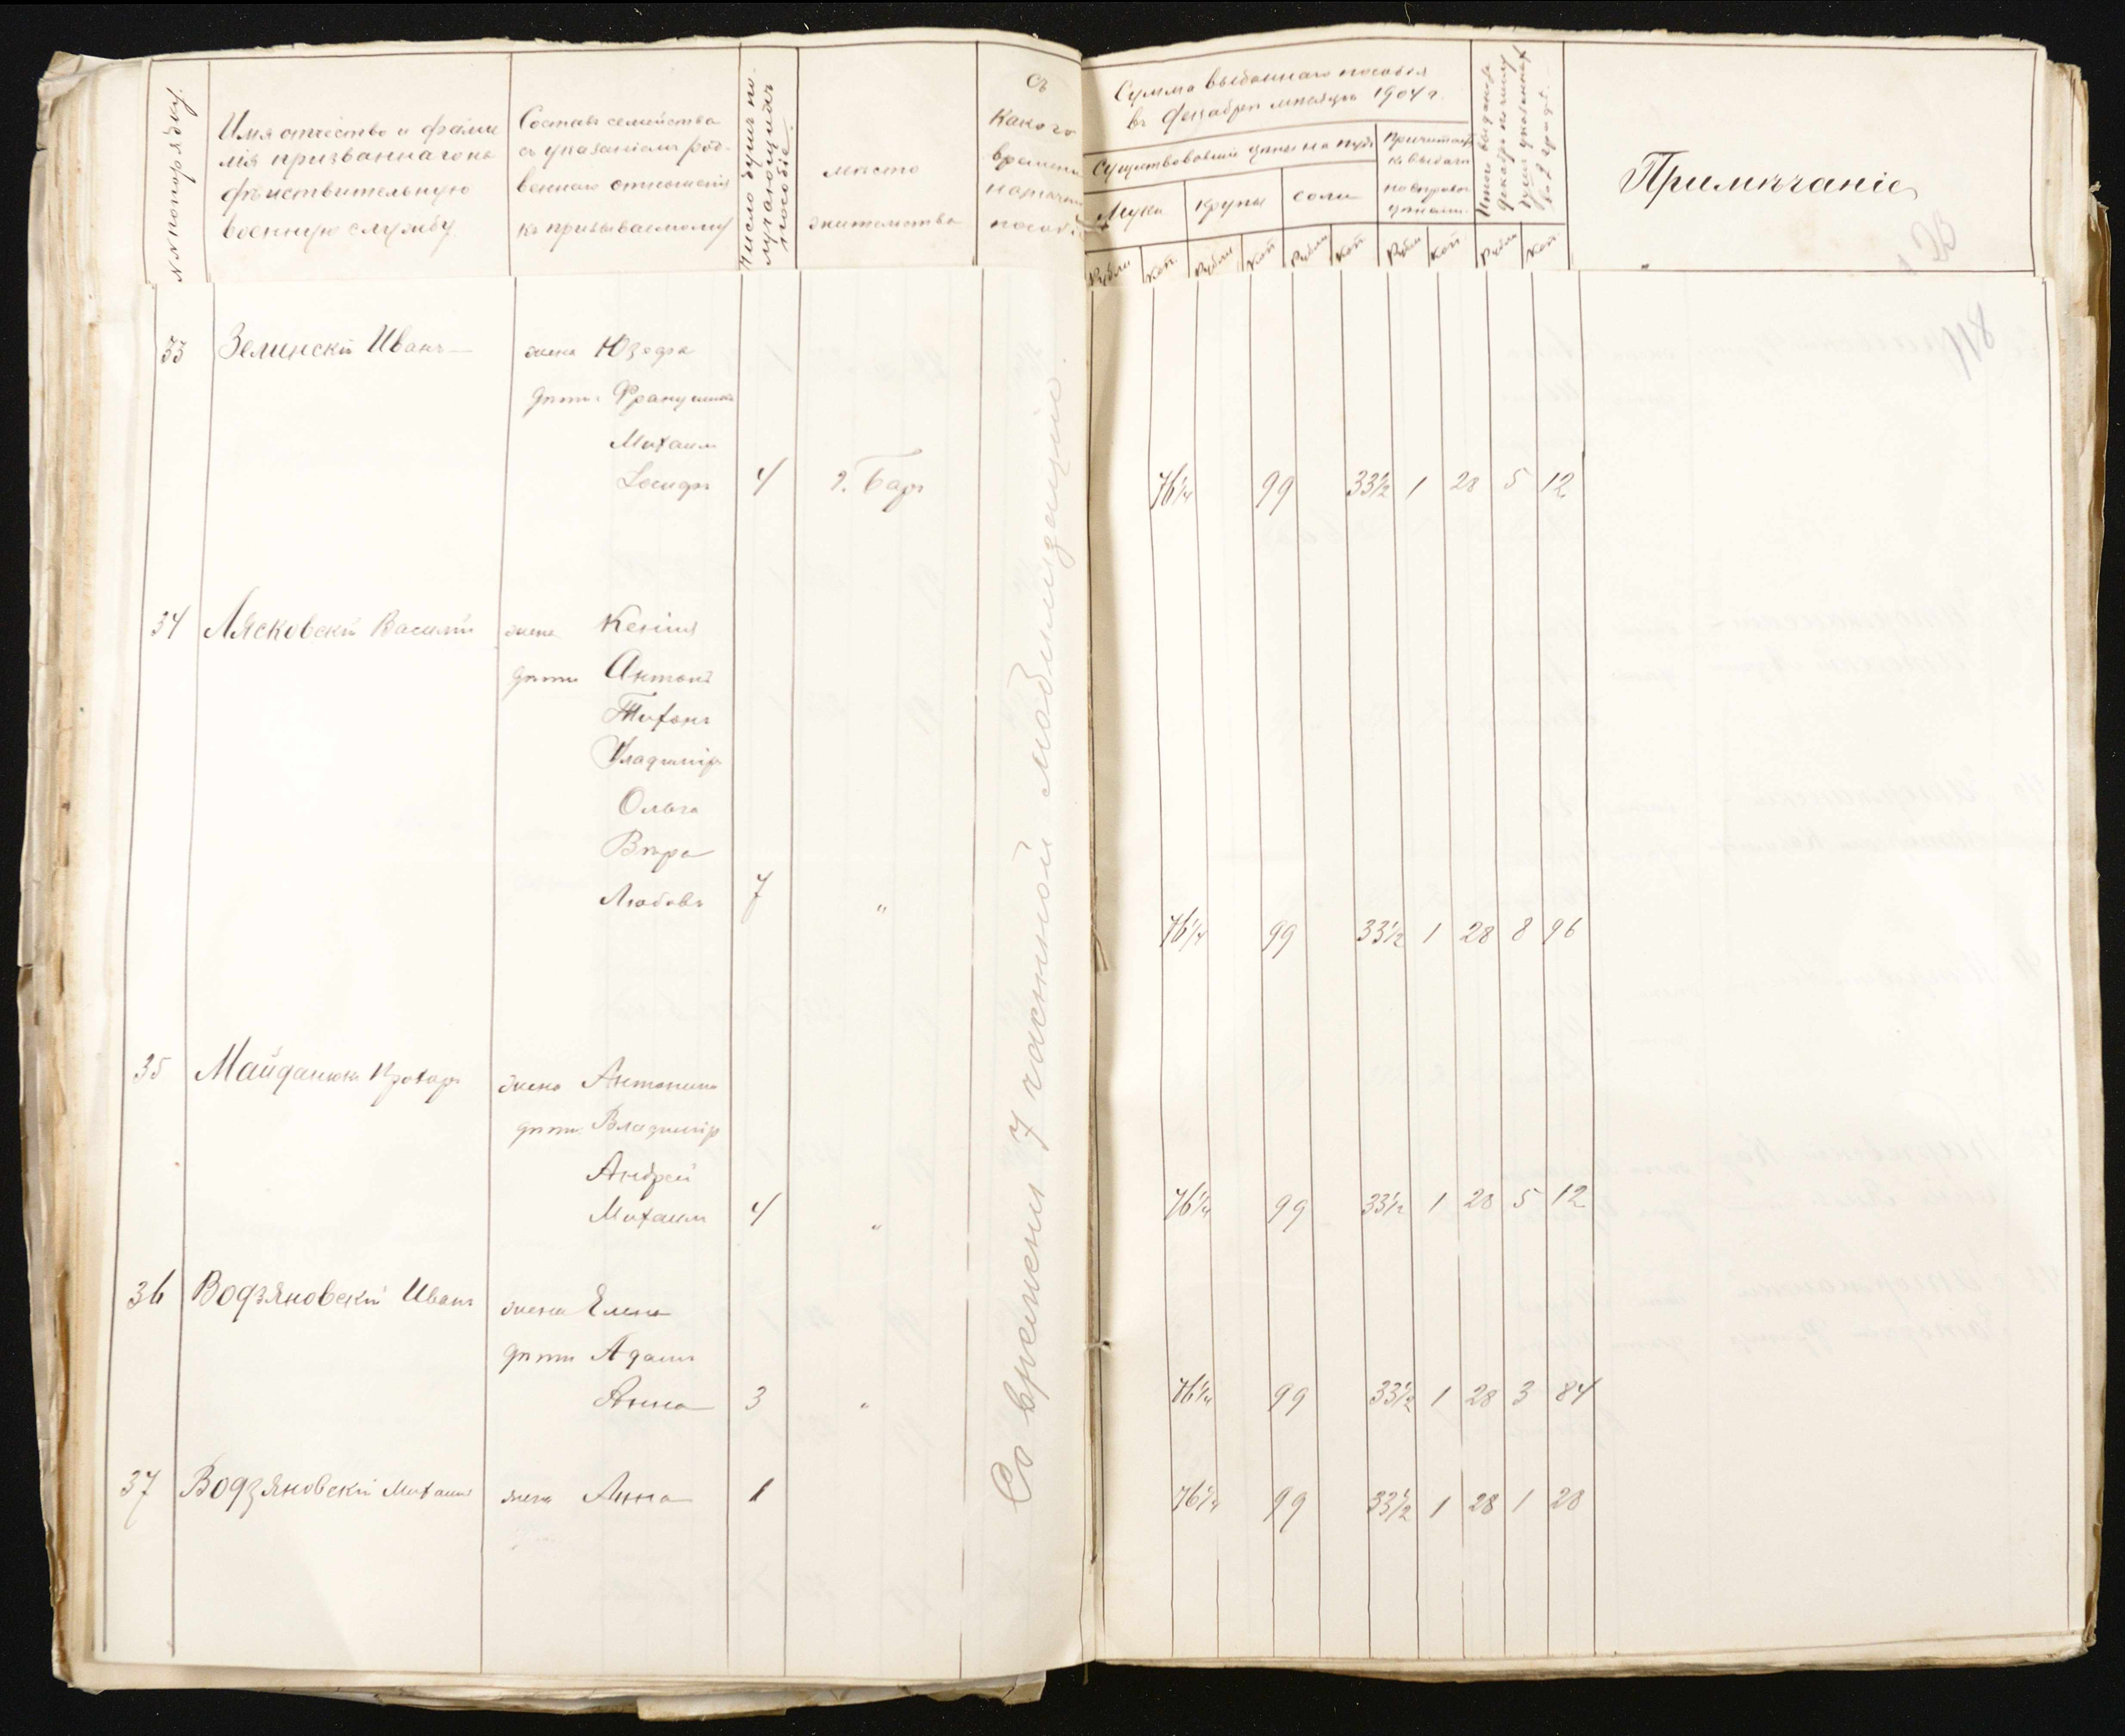 №№ по порядку.
Имя отчество и фами
лія призваннаго на
дѣйствительную
военную службу
Составъ семейства
съ указаніемъ род-
веннаго отношенія
къ призываемому
Число душъ по-
лучающихъ
пособіе
мѣсто
жительства
Съ
какого
времени
назначено
пособіе
Сумма выданнаго пособія
въ Декабрѣ мѣсяцѣ 1904 г.
Существовавшія цѣны на пудъ
Муки
крупы
соли
Рубли
Коп.
Рубли
Коп
Рубли
Коп.
Рубли
Коп
Рубли
Коп
Примѣчаніе
33 Зелинскій Иванъ — жена Юзефа
дѣти: Францишка
Михаилъ
Іосифъ 4 г. Баръ 76¼ 99 33½ 1 28 5 12
34 Лясковскій Василій жена Ксенія
дѣти Антоній
Тихонъ
Владиміръ
Ольга
Вѣра
Любовь 7 " 76¼ 99 33½ 1 28 8 96
35 Майданюкъ Прохоръ жена Антонина
дѣти: Владиміръ
Андрей
Михаилъ 4 " 76¼ 99 33½ 1 28 5 12
36 Водзяновскій Иванъ жена Елена
дѣти Адамъ
Анна 3 " 76¼ 99 33½ 1 28 3 84
37 Водзяновскій Михаилъ жена Анна 1 76¼ 99 33½ 1 28 1 28
Со времени 7 частной мобилизаціи.